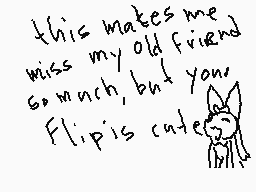 this makes me
miss my old friend
so much, but your
Flip is cute